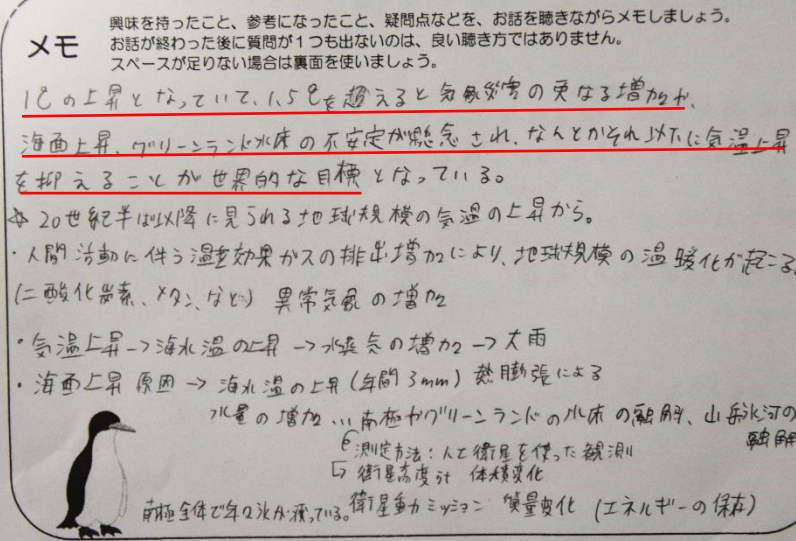 メモ
興味を持ったこと、参考になったこと、疑問点などを、お話を聴きながらメモしましょう。
お話が終わった後に質問が１つも出ないのは、良い聴き方ではありません。
スペースが足りない場合は裏面を使いましょう。
1℃の上昇となっていて、1.5℃を超えると気象災害の更なる増加や、
海面上昇、グリーンランド氷床の不安定が懸念され、なんとかそれ以下に気温上昇
を抑えることが世界的な目標となっている。
☆20世紀半ば以降に見られる地球規模の気温の上昇から。
・人間活動に伴う温室効果ガスの排出増加により、地球規模の温暖化が起こる。
(二酸化炭素、メタン、など) 異常気象の増加
・気温上昇→海水温の上昇→水蒸気の増加→大雨
・海面上昇 原因 → 海水温の上昇(年間3mm) 熱膨張による
氷量の増加…南極やグリーンランドの氷床の融解、山岳氷河の
融解
測定方法：人工衛星を使った観測
衛星高度計 体積変化
南極全体で年々氷が減っている。衛星重力ミッション 質量変化 (エネルギーの保存)